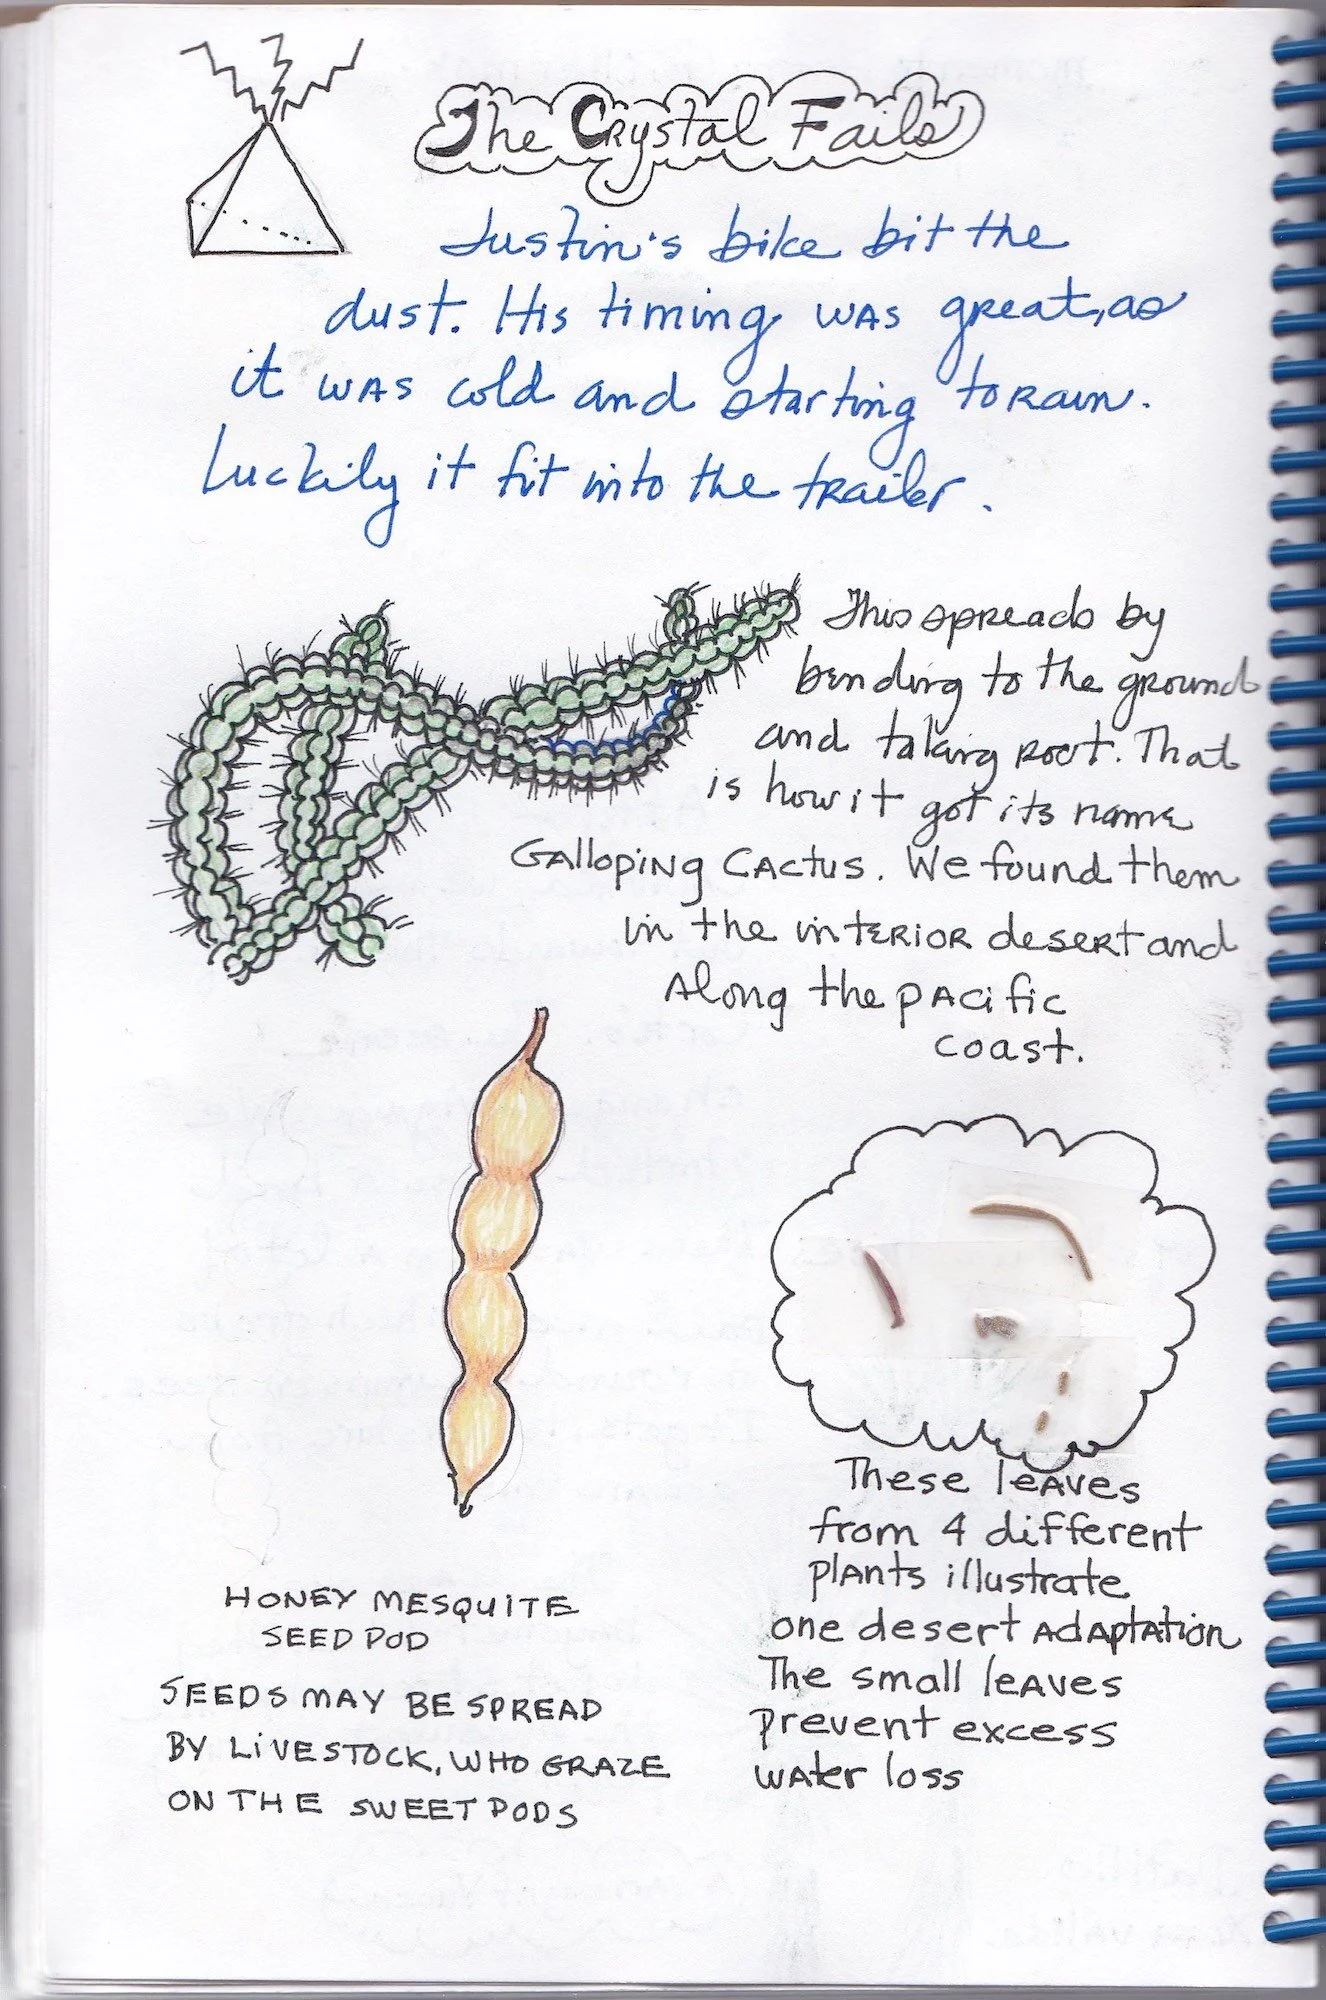 The Crystal Fails
Justin's bike bit the
dust. His timing was great, as
it was cold and starting to rain.
Luckily it fit into the trailer.
This spreads by
bending to the ground
and taking root. That
is how it got its name
Galloping Cactus. We found them
in the interior desert and
along the pacific
coast.
HONEY MESQUITE
SEED POD
SEEDS MAY BE SPREAD
BY LIVESTOCK, WHO GRAZE
ON THE SWEET PODS
These leaves
from 4 different
plants illustrate
one desert adaptation
The small leaves
prevent excess
water loss